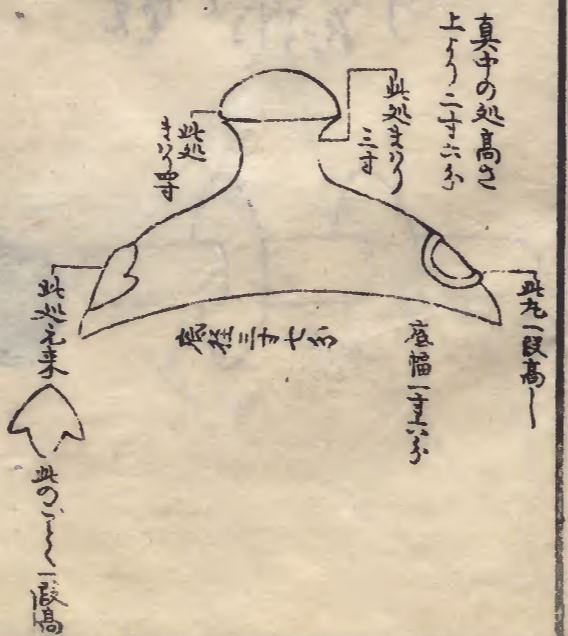 真中の処高さ
上より二寸六分
此処まハり
三寸
此処
まハり四寸
此丸一段高し
底幅一寸六分
底径三寸七分
此処元来
此のごとく一段高